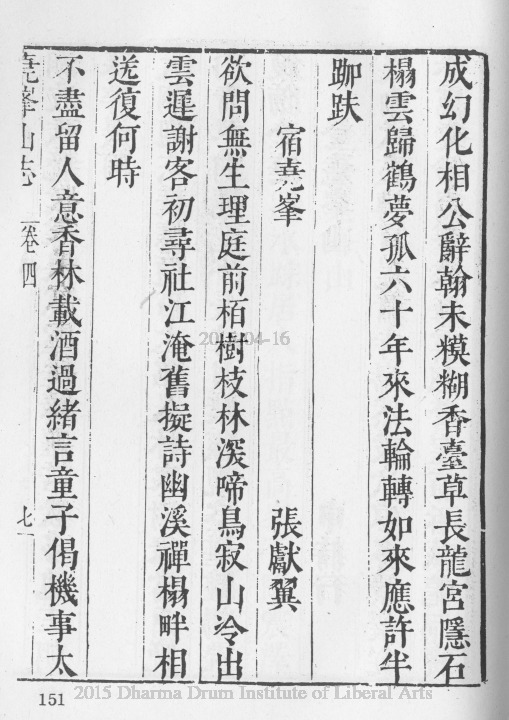 成幻化相公辭翰未糢糊香臺草長龍宮隱石
榻雲歸鶴夢孤六十年來法輪轉如來應許半
跏趺
宿堯峯 張獻翼
欲問無生理庭前栢樹枝林深啼鳥寂山冷出
雲遲謝客初尋社江淹舊擬詩幽溪禪榻畔相
送復何時
不盡留人意香林載酒過緒言童子偈機事太
堯峯山志 卷四 七
151
2015-04-16
2015 Dharma Drum Institute of Liberal Arts